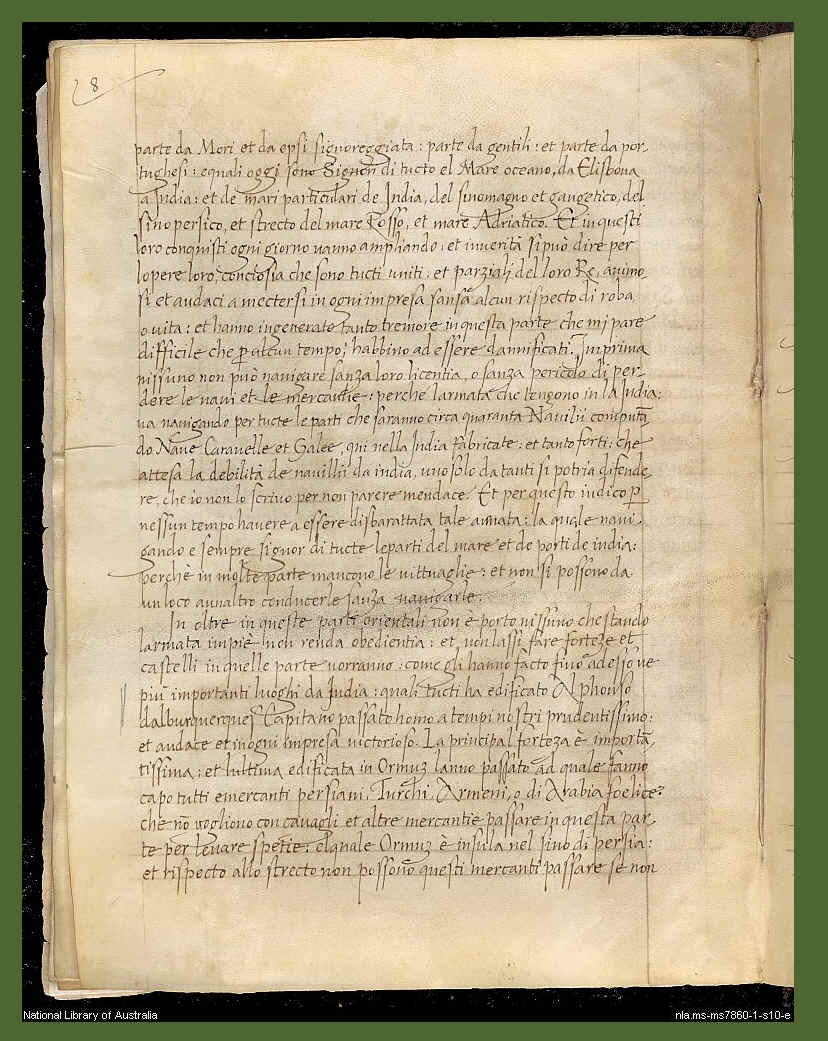 8
parte da Mori et da epsi signoreggiata: parte da gentili: et parte da por
tughesi: equali oggi sono Signori di tucto el Mare oceano, da Elisbona
a India: et de mari particulari de India, del sinomagno et gangetico, del
sino persico, et strecto del mare Rosso, et mare Adriatico. Et in questi
loro conquisti ogni giorno vanno ampliando: et in verità si può dire per
lopere loro, conciosia che sono tucti uniti: et parziali del loro Re, animo
si et audaci a mectersi in ogni impresa sansa alcun rispecto di roba
o vita: et hanno ingenerate tanto tremore in questa parte che mi pare
difficile che p alcun tempo, habbino ad essere dannificati. Imprima
nissuno non può navigare sanza loro licentia, o sanza pericolo di per
dere le navi et le mercantie: perche larmata che tengono in la India:
va navigando per tucte le parti che saranno circa quaranta Navilii computā
do Nave Caravelle et Galee, qui nella India fabricate: et tanto forti: che
attesa la debilità de navilii da india, uno solo da tanti si potria difende
re, che io non lo scrivo per non parere mendace. Et per questo iudico p
nessun tempo havere a essere disbarattata tale armata: la quale navi
gando e sempre signor di tucte leparti del mare et de porti de india:
perchè in molte parte mancono le vittuaglie: et non si possono da
un loco aunaltro conducerle sanza navigarle.
In oltre in queste parti orientali non è porto nissuno che stando
larmata impiè non renda obedientia: et non lassi fare forteze et
castelli in quelle parte vorranno: come gli hanno facto fino adesso ne
più importanti luoghi da India: quali tucti ha edificato Alphonso
dalburquerque Capitano passato homo a tempi nostri prudentissimo:
et audace et in ogni impresa victorioso. La principal forteza è importā
tissima: et lultima edificata in Ormuz lanno passato ad quale fanno
capo tutti emercanti persiani, Turchi, Armeni, o di Arabia foelice:
che nō vogliono con cavagli et altre mercantie passare in questa par
te per levare spetie: elquale Ormuz è insula nel sino di persia:
et rispecto allo strecto non possono questi mercanti passare se non
National Library of Australia
nla.ms-ms7860-1-s10-e